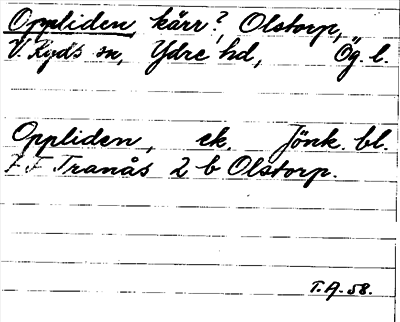 Oppliden, kärr?, Olstorp,
V. Ryds sn, Ydre hd, Ög. l.
Oppliden, ek. Jönk. bl.
7 F Tranås 2 b Olstorp.
T.A.-58.